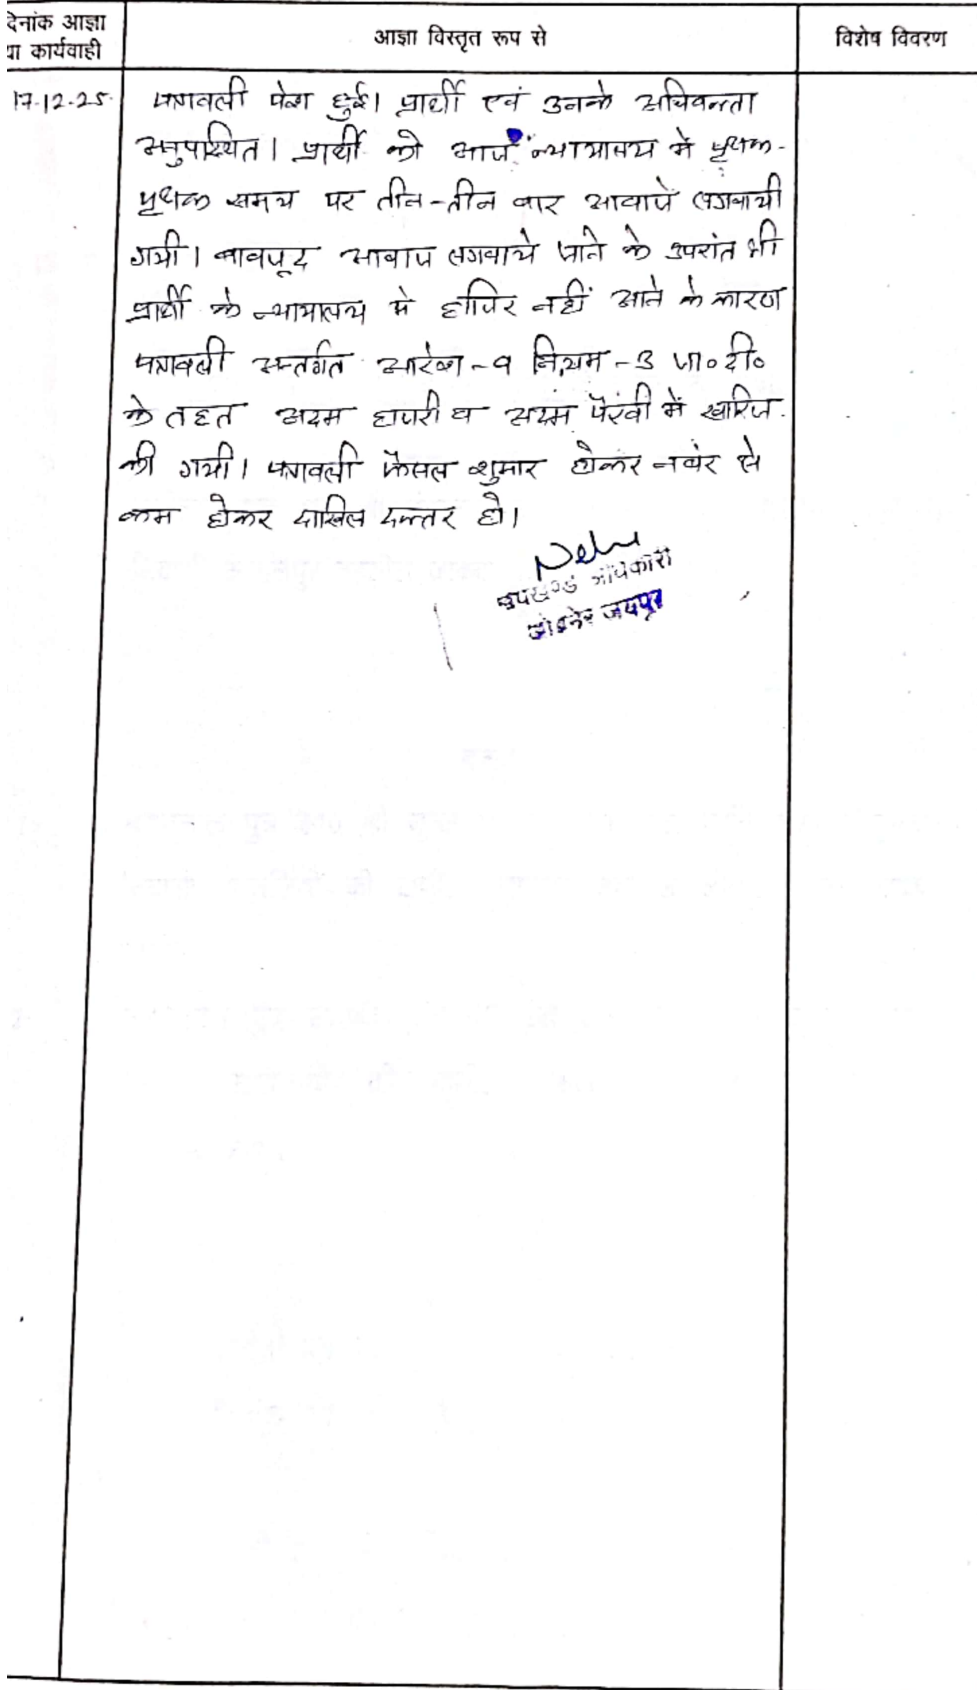 दिनांक आज्ञा
या कार्यवाही
आज्ञा विस्तृत रूप से
विशेष विवरण
17-12-25
पत्रावली पेश हुई। प्रार्थी एवं उनके अधिवक्ता
अनुपस्थित। प्रार्थी को आज न्यायालय में पृथक-
पृथक समय पर तीन-तीन बार आवाजें लगवायी
गयी। बावजूद आवाज लगवाये जाने के उपरांत भी
प्रार्थी के न्यायालय में हाजिर नहीं आने के कारण
पत्रावली अन्तर्गत आदेश-9 नियम-3 जा०दी०
के तहत अदम हाजरी व अदम पैरवी में खारिज
की गयी। पत्रावली फैसल शुमार होकर नम्बर से
कम होकर दाखिल दफ्तर हो।
उपखण्ड अधिकारी
जोबनेर जयपुर